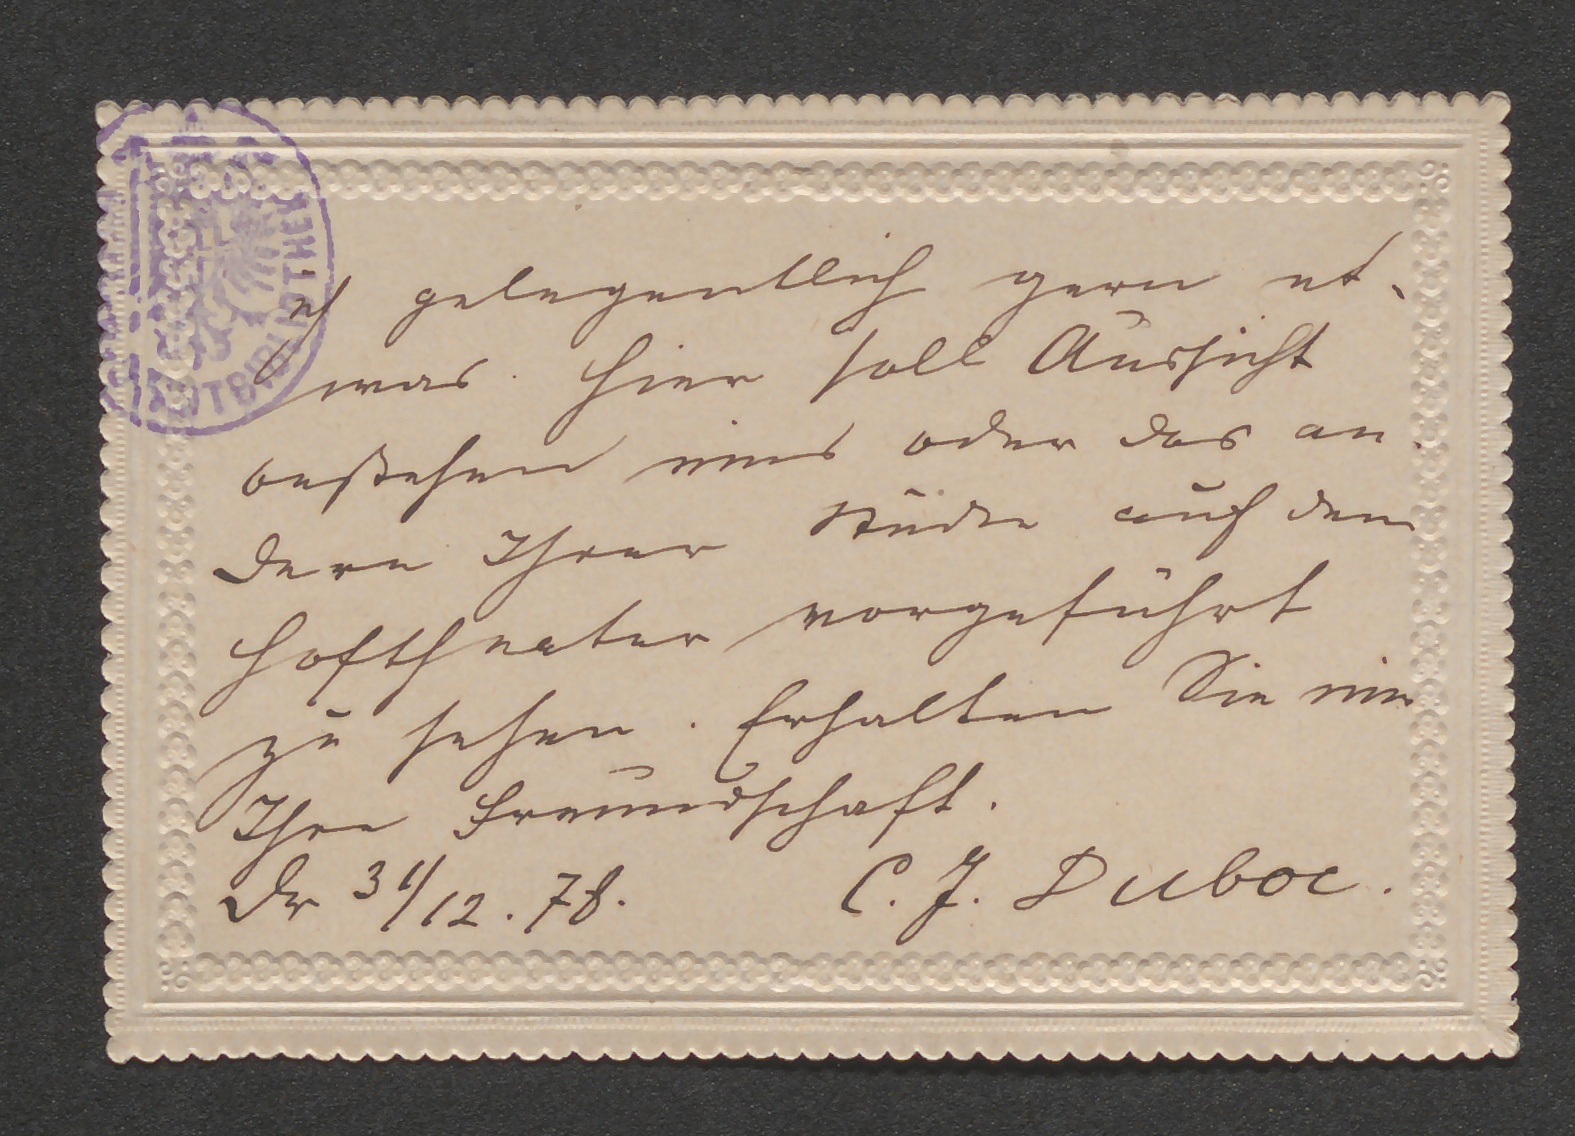 ich gelegentlich gern et-
was. Hier soll Aussicht
bestehen eins oder das an-
dere Ihrer Stücke auf dem
Hoftheater vorgeführt
zu sehen. Erhalten Sie mir
Ihre Freundschaft.
Dr 31/12. 78. C. J. Duboc.